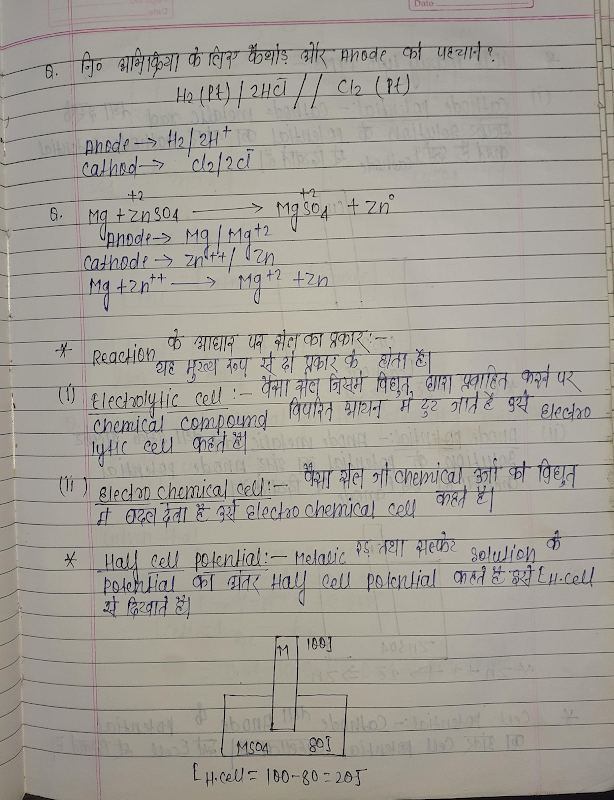 Date
Q. निo अभिक्रिया के लिए कैथोड और Anode को पहचाने?
H2 (Pt) / 2HCl // Cl2 (Pt)
Anode → H2/2H+
Cathod → Cl2/2Cl-
Q. Mg + ZnSO4 → MgSO4 + Zn°
+2 +2
Anode → Mg/Mg+2
Cathode → Zn++/Zn
Mg + Zn++ → Mg+2 + Zn
* Reaction के आधार पर सेल का प्रकार:-
यह मुख्य रूप से दो प्रकार के होता है।
(i) Electrolytic cell :- वैसा सेल जिसमें विद्युत धारा प्रवाहित करने पर
chemical compound विपरित आयन में टुट जाते है उसे Electro
lytic cell कहते है।
(ii) Electro chemical cell:- वैसा सेल जो chemical उर्जा को विद्युत
में बदल देता है उसे Electro chemical cell कहते है।
* Half cell potential:- Metalic रड तथा सल्फेट solution के
potential का अंतर Half cell potential कहते है इसे E H.cell
से दिखाते है।
M 100J
MSO4 80J
E H.cell = 100-80 = 20J